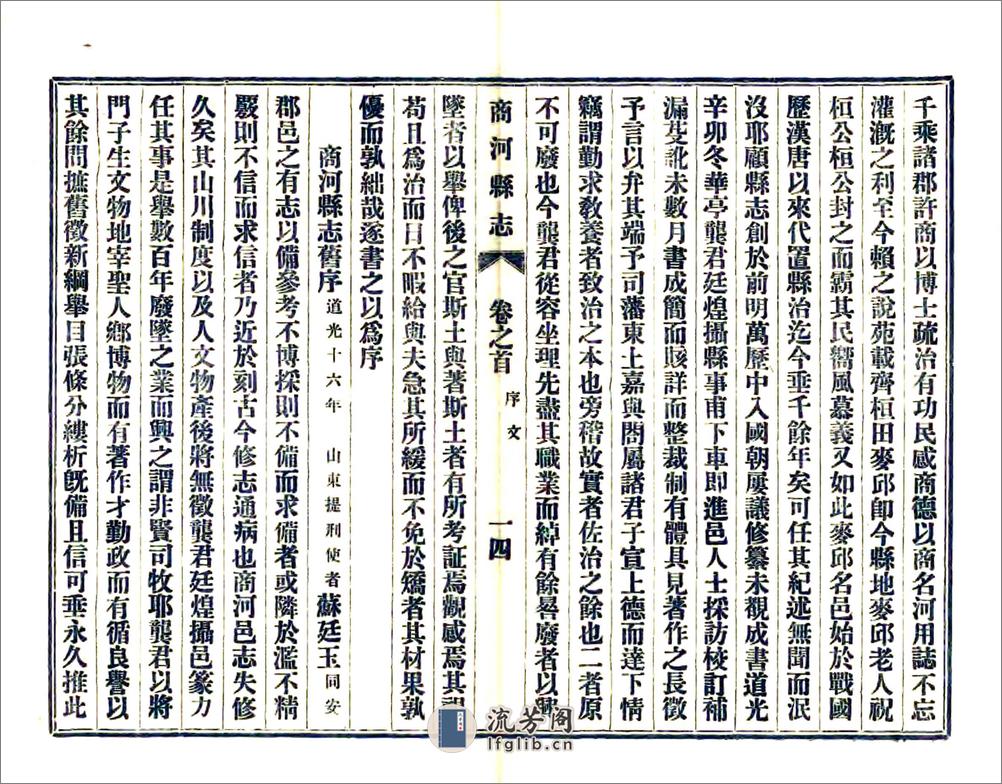 千乘諸郡許商以博士疏治有功民感商德以商名河用誌不忘
灌漑之利至今賴之說苑載齊桓田麥邱卽今縣地麥邱老人祝
桓公桓公封之而霸其民嚮風慕義又如此麥邱名邑始於戰國
歷漢唐以來代置縣治迄今垂千餘年矣可任其紀述無聞而泯
沒耶顧縣志創於前明萬歷中入國朝屢議修纂未覩成書道光
辛卯冬華亭龔君廷煌攝縣事甫下車即進邑人士採訪校訂補
漏芟訛未數月書成簡而賅詳而整裁制有體具見著作之長徵
予言以弁其端予司藩東土嘉與閤屬諸君子宣上德而達下情
竊謂勤求敎養者致治之本也旁稽故實者佐治之餘也二者原
不可廢也今龔君從容坐理先盡其職業而綽有餘晷廢者以興
商河縣志
卷之首
序文
一四
墜者以舉俾後之官斯土與著斯土者有所考証焉觀感焉其視
苟且爲治而日不暇給與夫急其所緩而不免於矯者其材果孰
優而孰絀哉遂書之以爲序
商河縣志舊序 道光十六年 山東提刑使者 蘇廷玉 同安
郡邑之有志以備參考不博採則不備而求備者或隣於濫不精
覈則不信而求信者乃近於刻古今修志通病也商河邑志失修
久矣其山川制度以及人文物產後將無徵龔君廷煌攝邑篆力
任其事是舉數百年廢墜之業而興之謂非賢司牧耶龔君以將
門子生文物地宰聖人鄕博物而有著作才勤政而有循良譽以
其餘間摭舊徵新綱舉目張條分縷析旣備且信可垂永久推此
流芳閣
lfglib.cn